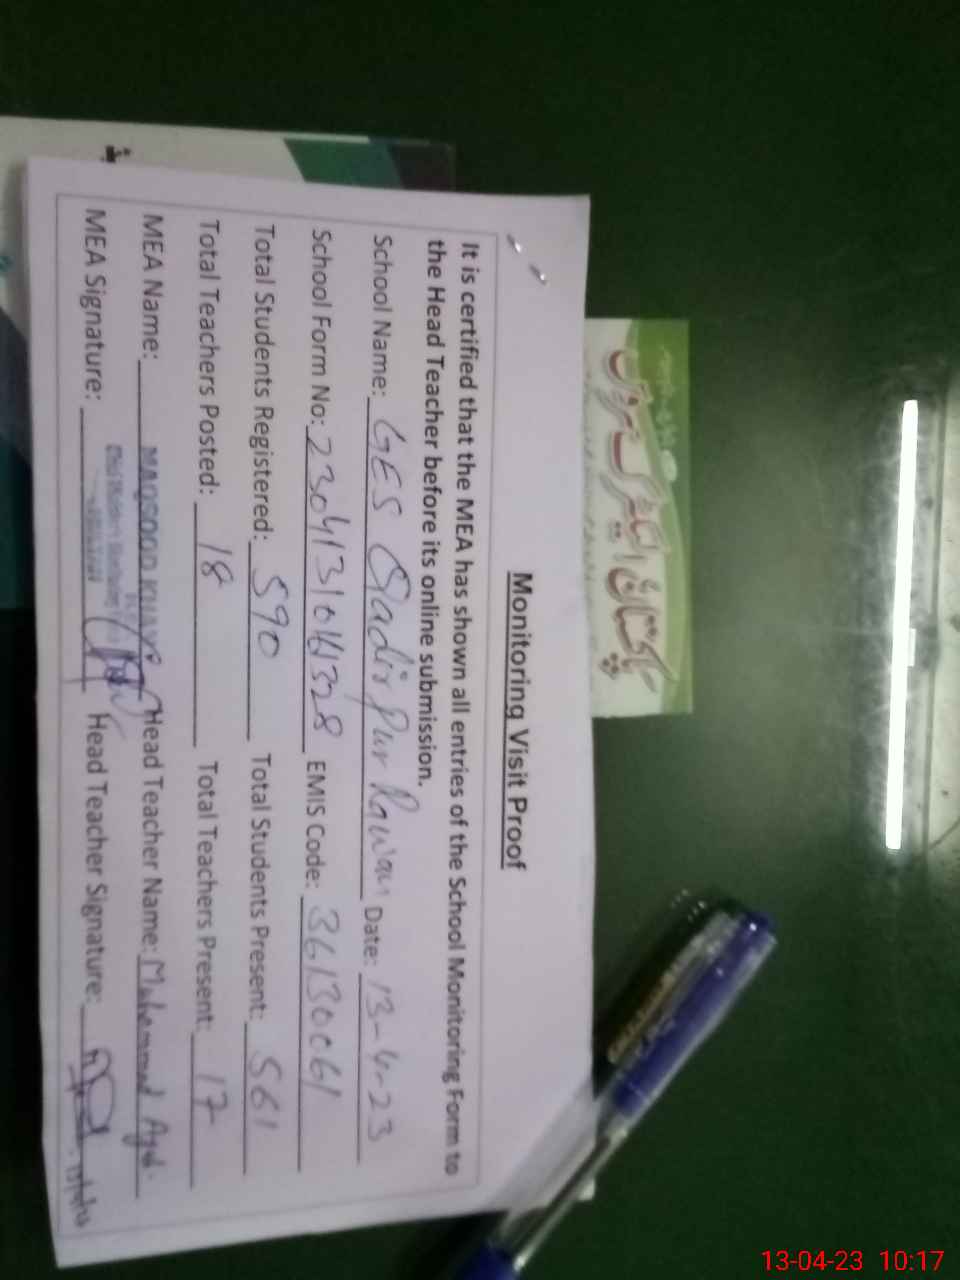 Monitoring Visit Proof
It is certified that the MEA has shown all entries of the School Monitoring Form to
the Head Teacher before its online submission.
School Name: GES Qadir Pur Rawan Date: 13-4-23
School Form No: EMIS Code: 36130061
Total Students Registered: 590 Total Students Present: 561
Total Teachers Posted: 18 Total Teachers Present: 17
MEA Name: MAQSOOD Head Teacher Name:
MEA Signature: Head Teacher Signature:
13-04-23 10:17